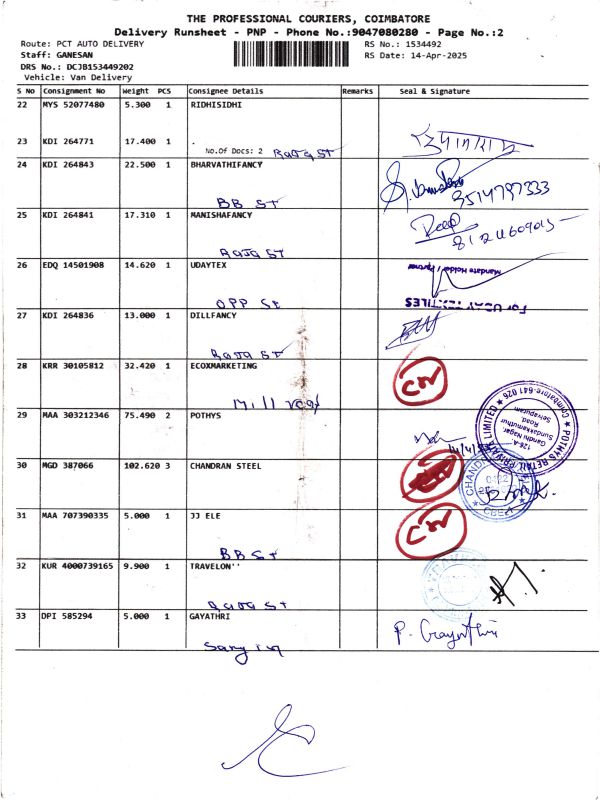 THE PROFESSIONAL COURIERS, COIMBATORE
Delivery Runsheet - PNP - Phone No.:9047080280 - Page No.:2
Route: PCT AUTO DELIVERY RS No.: 1534492
Staff: GANESAN RS Date: 14-Apr-2025
DRS No.: DCJB153449202
Vehicle: Van Delivery
S No Consignment No Weight PCS Consignee Details Remarks Seal & Signature
22 MYS 52077480 5.300 1 RIDHISIDHI
23 KDI 264771 17.400 1 .
No.Of Docs: 2 Raja St
24 KDI 264843 22.500 1 BHARVATHIFANCY
BB St 9514797333
25 KDI 264841 17.310 1 MANISHAFANCY
Raja St
26 EDQ 14501908 14.620 1 UDAYTEX
Mandate Holder / Partner
OPP St For UDAY TEXTILES
27 KDI 264836 13.000 1 DILLFANCY
Raja St
28 KRR 30105812 32.420 1 ECOXMARKETING
Mill Road
29 MAA 303212346 75.490 2 POTHYS
POTHYS RETAIL PRIVATE LIMITED
126-A,
Gandhi Nagar,
Sundakkamuthur
Road,
Selvapuram,
Coimbatore-641 026
30 MGD 387066 102.620 3 CHANDRAN STEEL
31 MAA 707390335 5.000 1 JJ ELE
BB St
32 KUR 4000739165 9.900 1 TRAVELON''
Raja St
33 DPI 585294 5.000 1 GAYATHRI
P. Gayathri